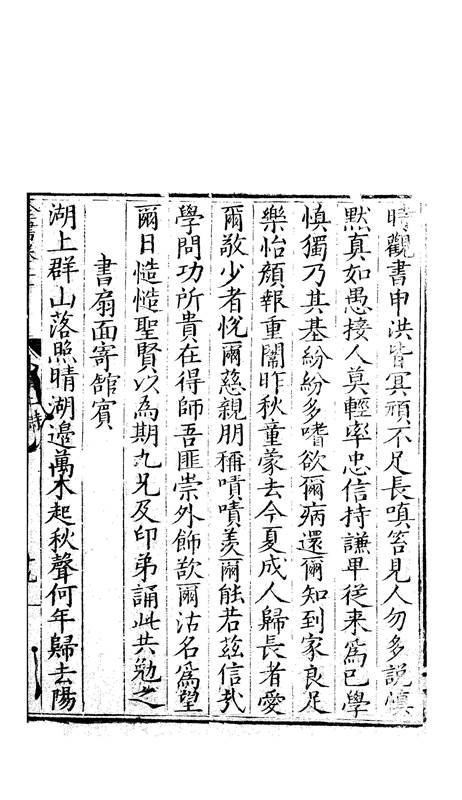 時觀書申洪皆冥頑不足長嗔笞見人勿多說慎
默真如愚接人莫輕率忠信持謙卑從来為己學
慎獨乃其基紛紛多嗜欲爾病還爾知到家良足
樂怡顏報重闈昨秋童蒙去今夏成人歸長者愛
爾敬少者悅爾慈親朋稱嘖嘖羨爾能若茲信哉
學問功所貴在得師吾匪崇外飾欲爾沽名為望
爾日慥慥聖賢以為期九兄及印弟誦此共勉之
書扇面寄館賓
湖上群山落照晴湖邊萬木起秋聲何年歸去陽